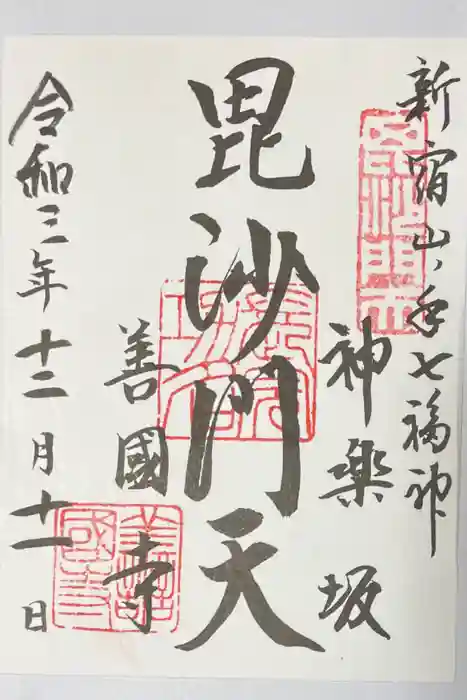 新宿山ノ手七福神
神楽坂
毘沙門天
善國寺
令和三年十二月十一日